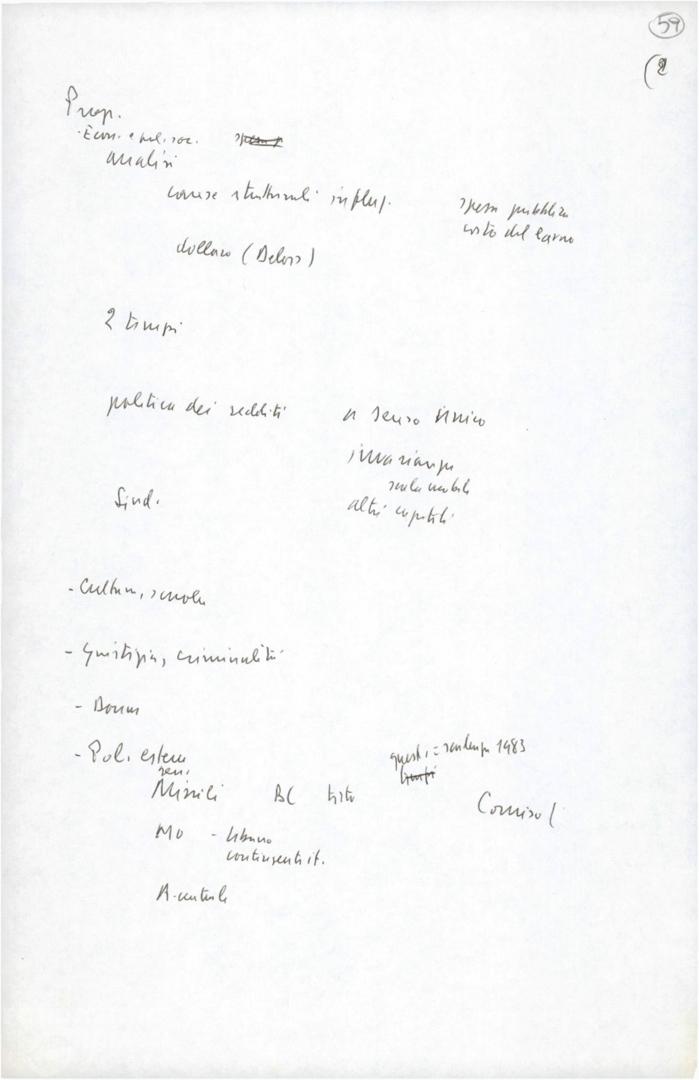 59
(2
Prog.
- Econ. e pol. soc.
analisi
cause strutturali inflaz. spesa pubblica
costo del lavoro
dollaro (Delors)
2 tempi
politica dei redditi a senso unico
invarianza
scala mobile
Sind. altri capitoli
- Cultura, scuola
- Giustizia, criminalità
- Donne
- Pol. estera
quest. = scadenza 1983
Missili BC testo Comiso (
MO - Libano
contingente it.
A. centrale